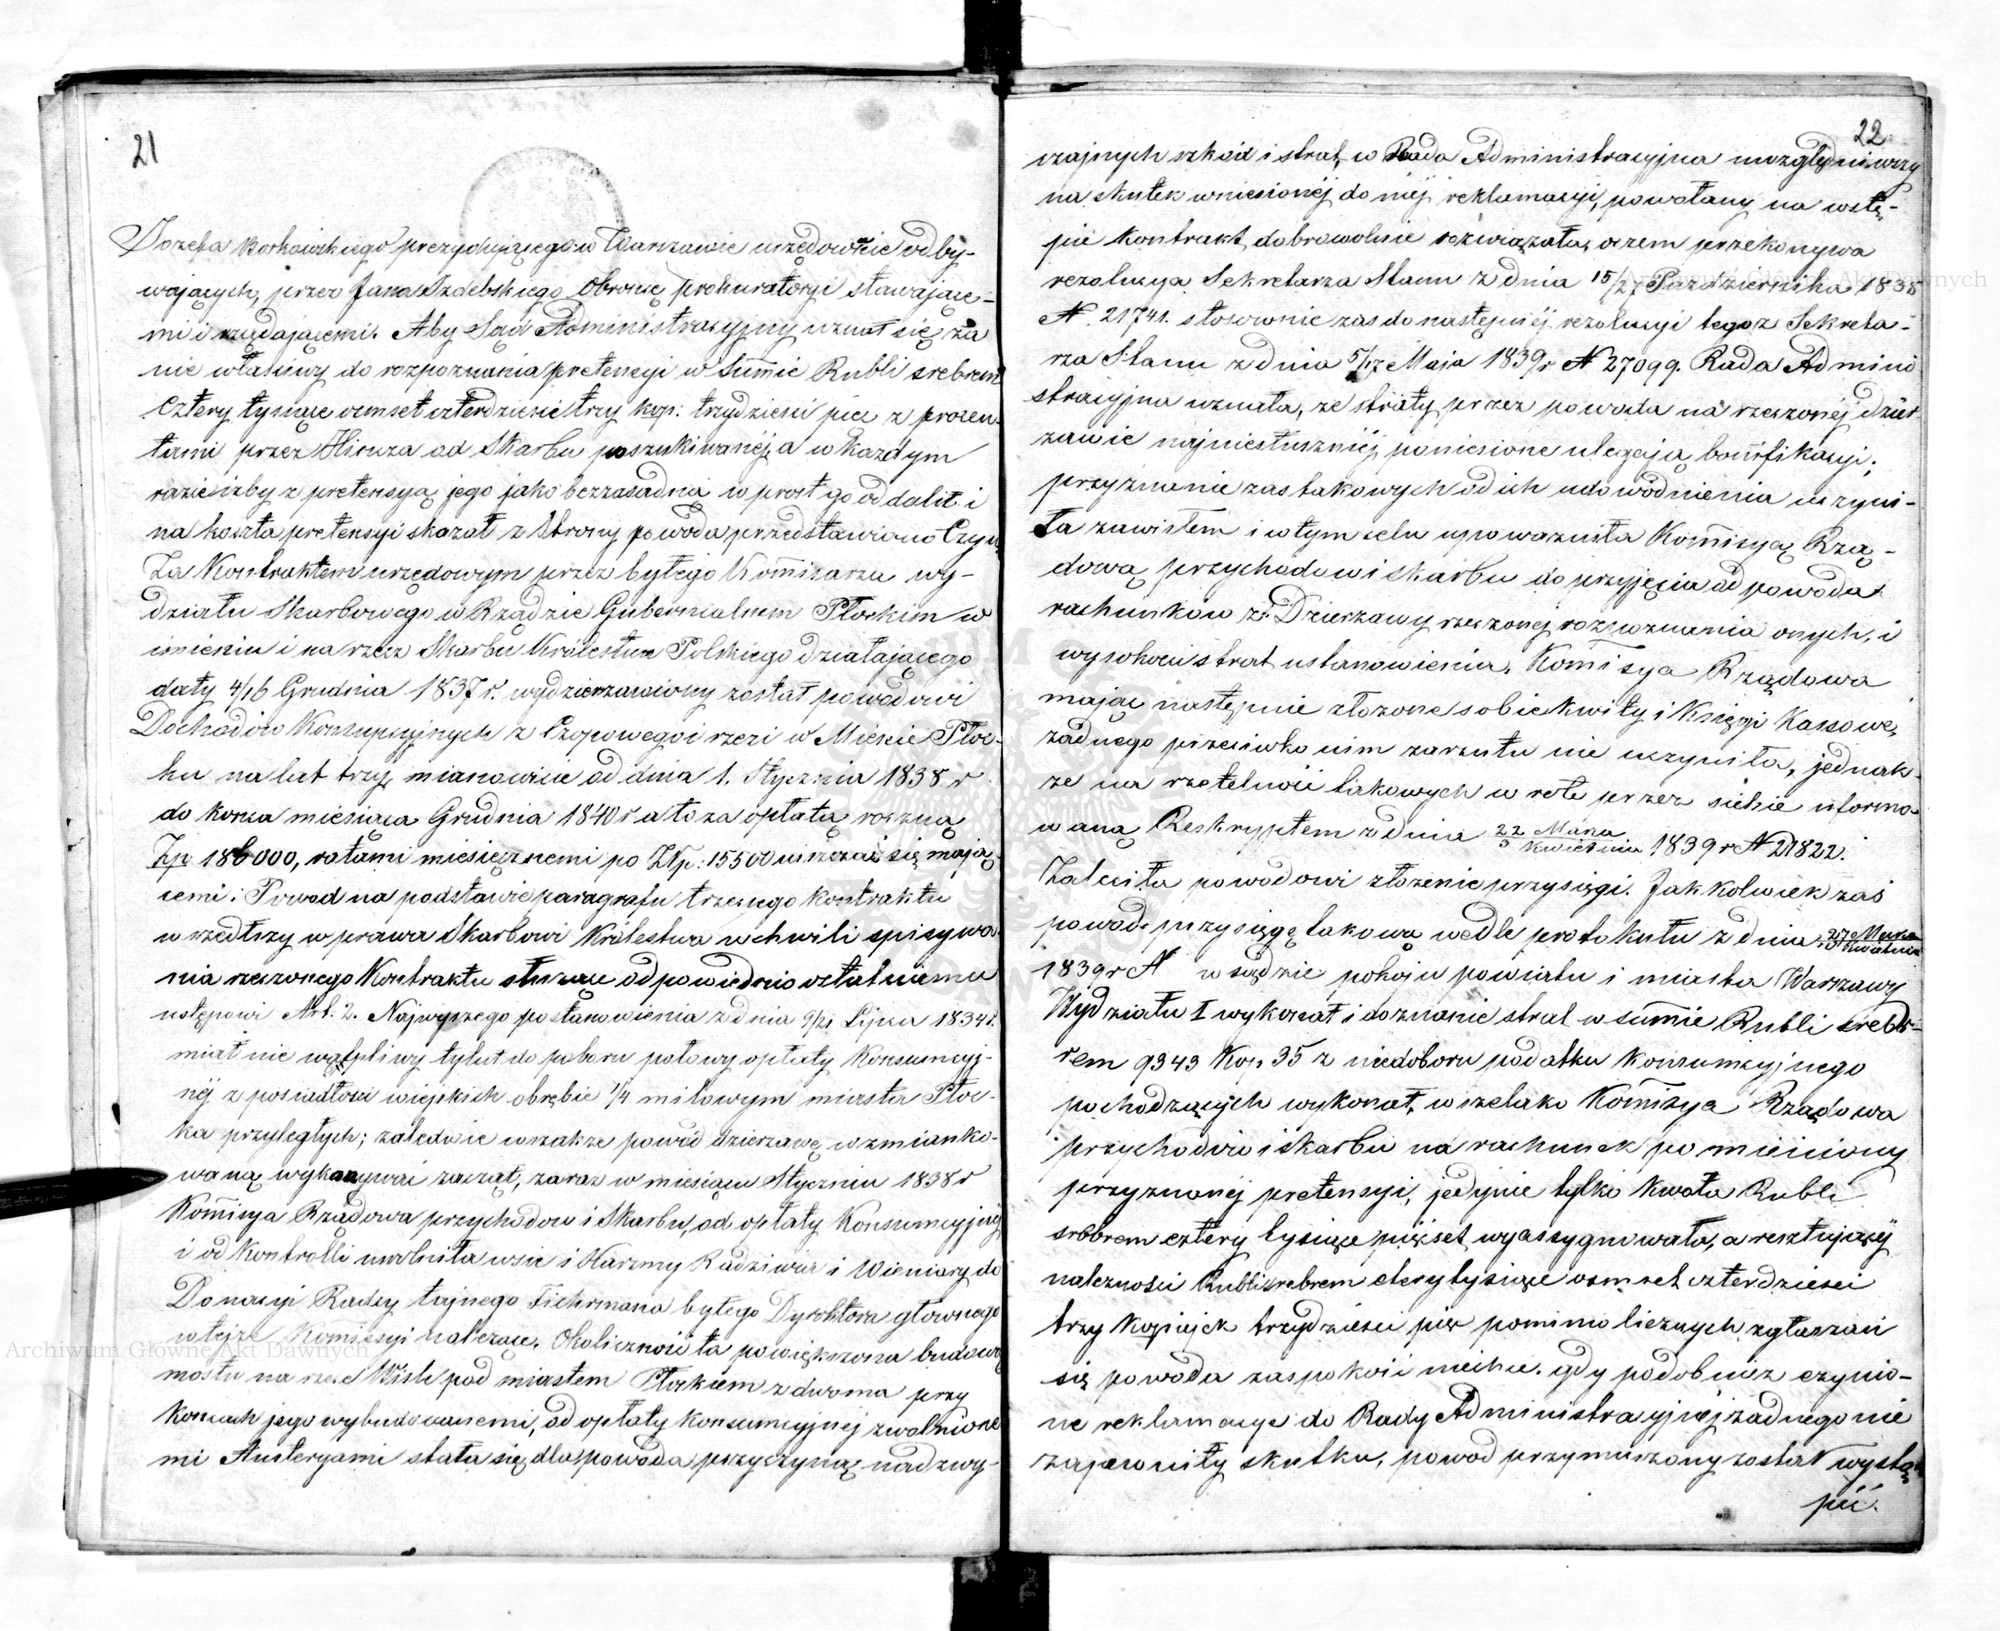 21
Józefa Borkowskiego prezydującego w Warszawie urzędownie odby-
wających, przez Jana Izdebskiego Obrońcę prokuratoryi stawające-
mi i żądającemi. Aby Sąd Administracyjny uznał się za
nie właściwy do rozpoznania pretensyi w Summie Rubli srebrem
Cztery tysiące ośmset czterdzieści trzy kop: trzydzieści pięć z procen-
tami przez Hirsza od Skarbu poszukiwanéj, a w każdym
razie iżby z pretensyą jego jako bezzasadną wprost go oddalił i
na koszta pretensyi skazał z Strony powoda przedstawiono Czyn
Za Kontraktem urzędowym przez byłego Kommissarza wy-
działu Skarbowego w Rządzie Gubernialnem Płockim w
imieniu i na rzecz Skarbu Królestwa Polskiego działającego
daty 4/16 Grudnia 1837 r. wydzierżawiony został powodowi
Dochodów Konsupcyjnych z Czopowego i rzezi w Mieście Płoc-
ku na lat trzy, mianowicie od dnia 1. Stycznia 1838 r
do końca miesiąca Grudnia 1840 r a to za opłatą roczną
Złp 186000, ratami miesięcznemi po Złp: 15500 uiszczać się mają-
cemi: Powod na podstawie paragrafu trzeciego Kontraktu
wszedłszy w prawa Skarbowi Królestwa w chwili spisywa-
nia rzeczonego Kontraktu służące odpowiednio ostatniemu
ustępowi Art: 2. Najwyższego postanowienia z dnia 9/21 Lipca 1834 r.
miał nie wątpliwy tytuł do poboru połowy opłaty Konsumcyj-
néj z posiadłości wiejskich obrębie 1/4 milowym miasta Płoc-
ka przyległych; zaledwie wszakże powód dzierżawę wzmianko-
waną wykonywać zaczął, zaraz w miesiącu Styczniu 1838 r
Kommisya Rządowa przychodów i Skarbu, od opłaty Konsumcyjnéj
i od Kontrolli uwolniła wsie i Karczmy Radziwia i Winiary do
Donacyi Radzcy tajnego Fuhrmana byłego Dyrektora głównego
w tejże Kommissyi należące. Okoliczność ta powiększona budową
mostu na rzece Wiśle pod miastem Płockiem z dwoma przy
Końcach jego wybudowanemi, od opłaty Konsumcyjnéj zwolnione-
mi Austeryami stała się dla powoda przyczyną nadzwy-
22
czajnych szkód i strat, w Rada Administracyjna uwzględniwszy
na skutek wniesionéj do niéj reklamacyi, powołany na wstę-
pie Kontrakt, dobrowolnie rozwiązała, oczem przekonywa
rezolucya Sekretarza Stanu z dnia 15/27 Października 1838
N. 21741. stosownie zaś do następnéj rezolucyi tegoż Sekreta-
rza Stanu z dnia 5/17 Maja 1839 r N 27099. Rada Admini
stracyjna uznała, że straty przez powoda na rzeczonéj dzier-
żawie najniesłuszniéj poniesione ulegają bonifikacyi;
przyznanie zaś takowych od ich udowodnienia uczyni-
ła zawisłem i w tym celu upoważniła Kommissyą Rzą-
dową przychodów i skarbu do przyjęcia od powoda
rachunków z Dzierżawy rzeczonéj rozpoznania onych, i
wysokości strat ustanowienia. Kommisya Rządowa
mając następnie złożone sobie Kwity i Księgi Kassowe,
żadnego przeciwko nim zarzutu nie uczyniła, jednak-
że na rzetelność takowych w rotę przez siebie uformo-
waną Reskryptem z dnia 22 Marca / 3 Kwietnia 1839 r N 21822.
Zaleciła powodowi złożenie przysięgi. Jakkolwiek zaś
powód przysięgę takową wedle protokułu z dnia 29 Marca / Kwietnia
1839 r N w sądzie pokoju powiatu i miasta Warszawy
Wydziału I wykonał i doznanie strat w summie Rubli srebr-
rem 9343 Kop. 35 z niedoboru podatku Konsumcyjnego
pochodzących wykonał, wszelako Kommisya Rządowa
przychodów i skarbu na rachunek pomienionéj
przyznanéj pretensyi, jedynie tylko Kwotę Rubli
srebrem cztery tysiące pięćset wyassygnowała, a resztującéj
należności Rubli srebrem cztery tysiące ośmset czterdzieści
trzy Kopiejek trzydzieści pięć pomimo licznych zgłaszań
się powoda zaspokoić niechce. gdy podobnież czynio-
ne reklamacye do Rady Administracyjnéj żadnego nie
zapewniły skutku, powod przymuszony został wystą-
pić.
Archiwum Główne Akt Dawnych
Archiwum Główne Akt Dawnych